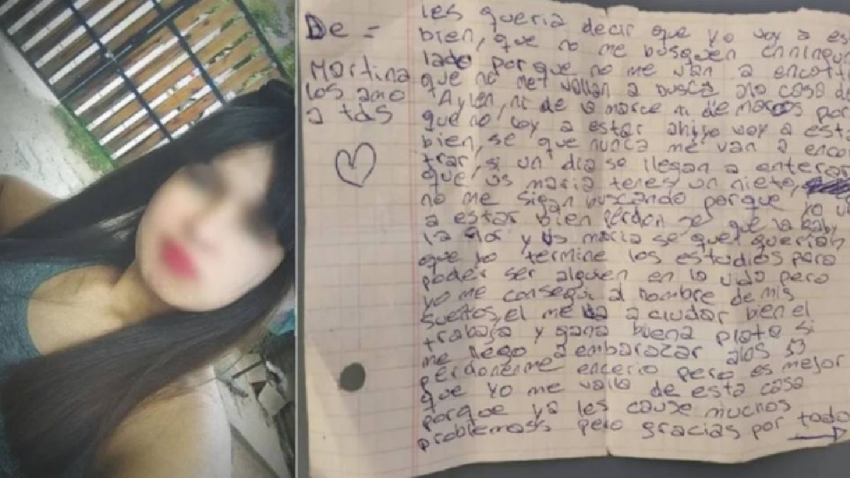 De =
Martina
los amo
a tds
les queria decir que yo voy a es
bien, que no me busquen enningun
lado porque no me van a encott
que no me vallan a busca ala casa de
Aylen, ni de la marce ni de marcos por
que no, voy a estar ahi yo voy a esta
bien, se que nunca me van a encon
trar, si un dia se llegan a enterar
que vs maria teres un niete,
no me sigan buscando porque yo v
a estar bien perdon se que la gaby
la flor y vs maria se que querian
que yo termine los estudios para
poder ser alguen en la vida pero
yo me consegui al hombre de mis
sueños, el me va a aiudar bien el
trabaja y gana buena plata si
me llego a embarazar alos 13
perdonenme encerio pero es mejor
que yo me valla de esta casa
porque ya les cause muchos
problemass pero gracias por todo